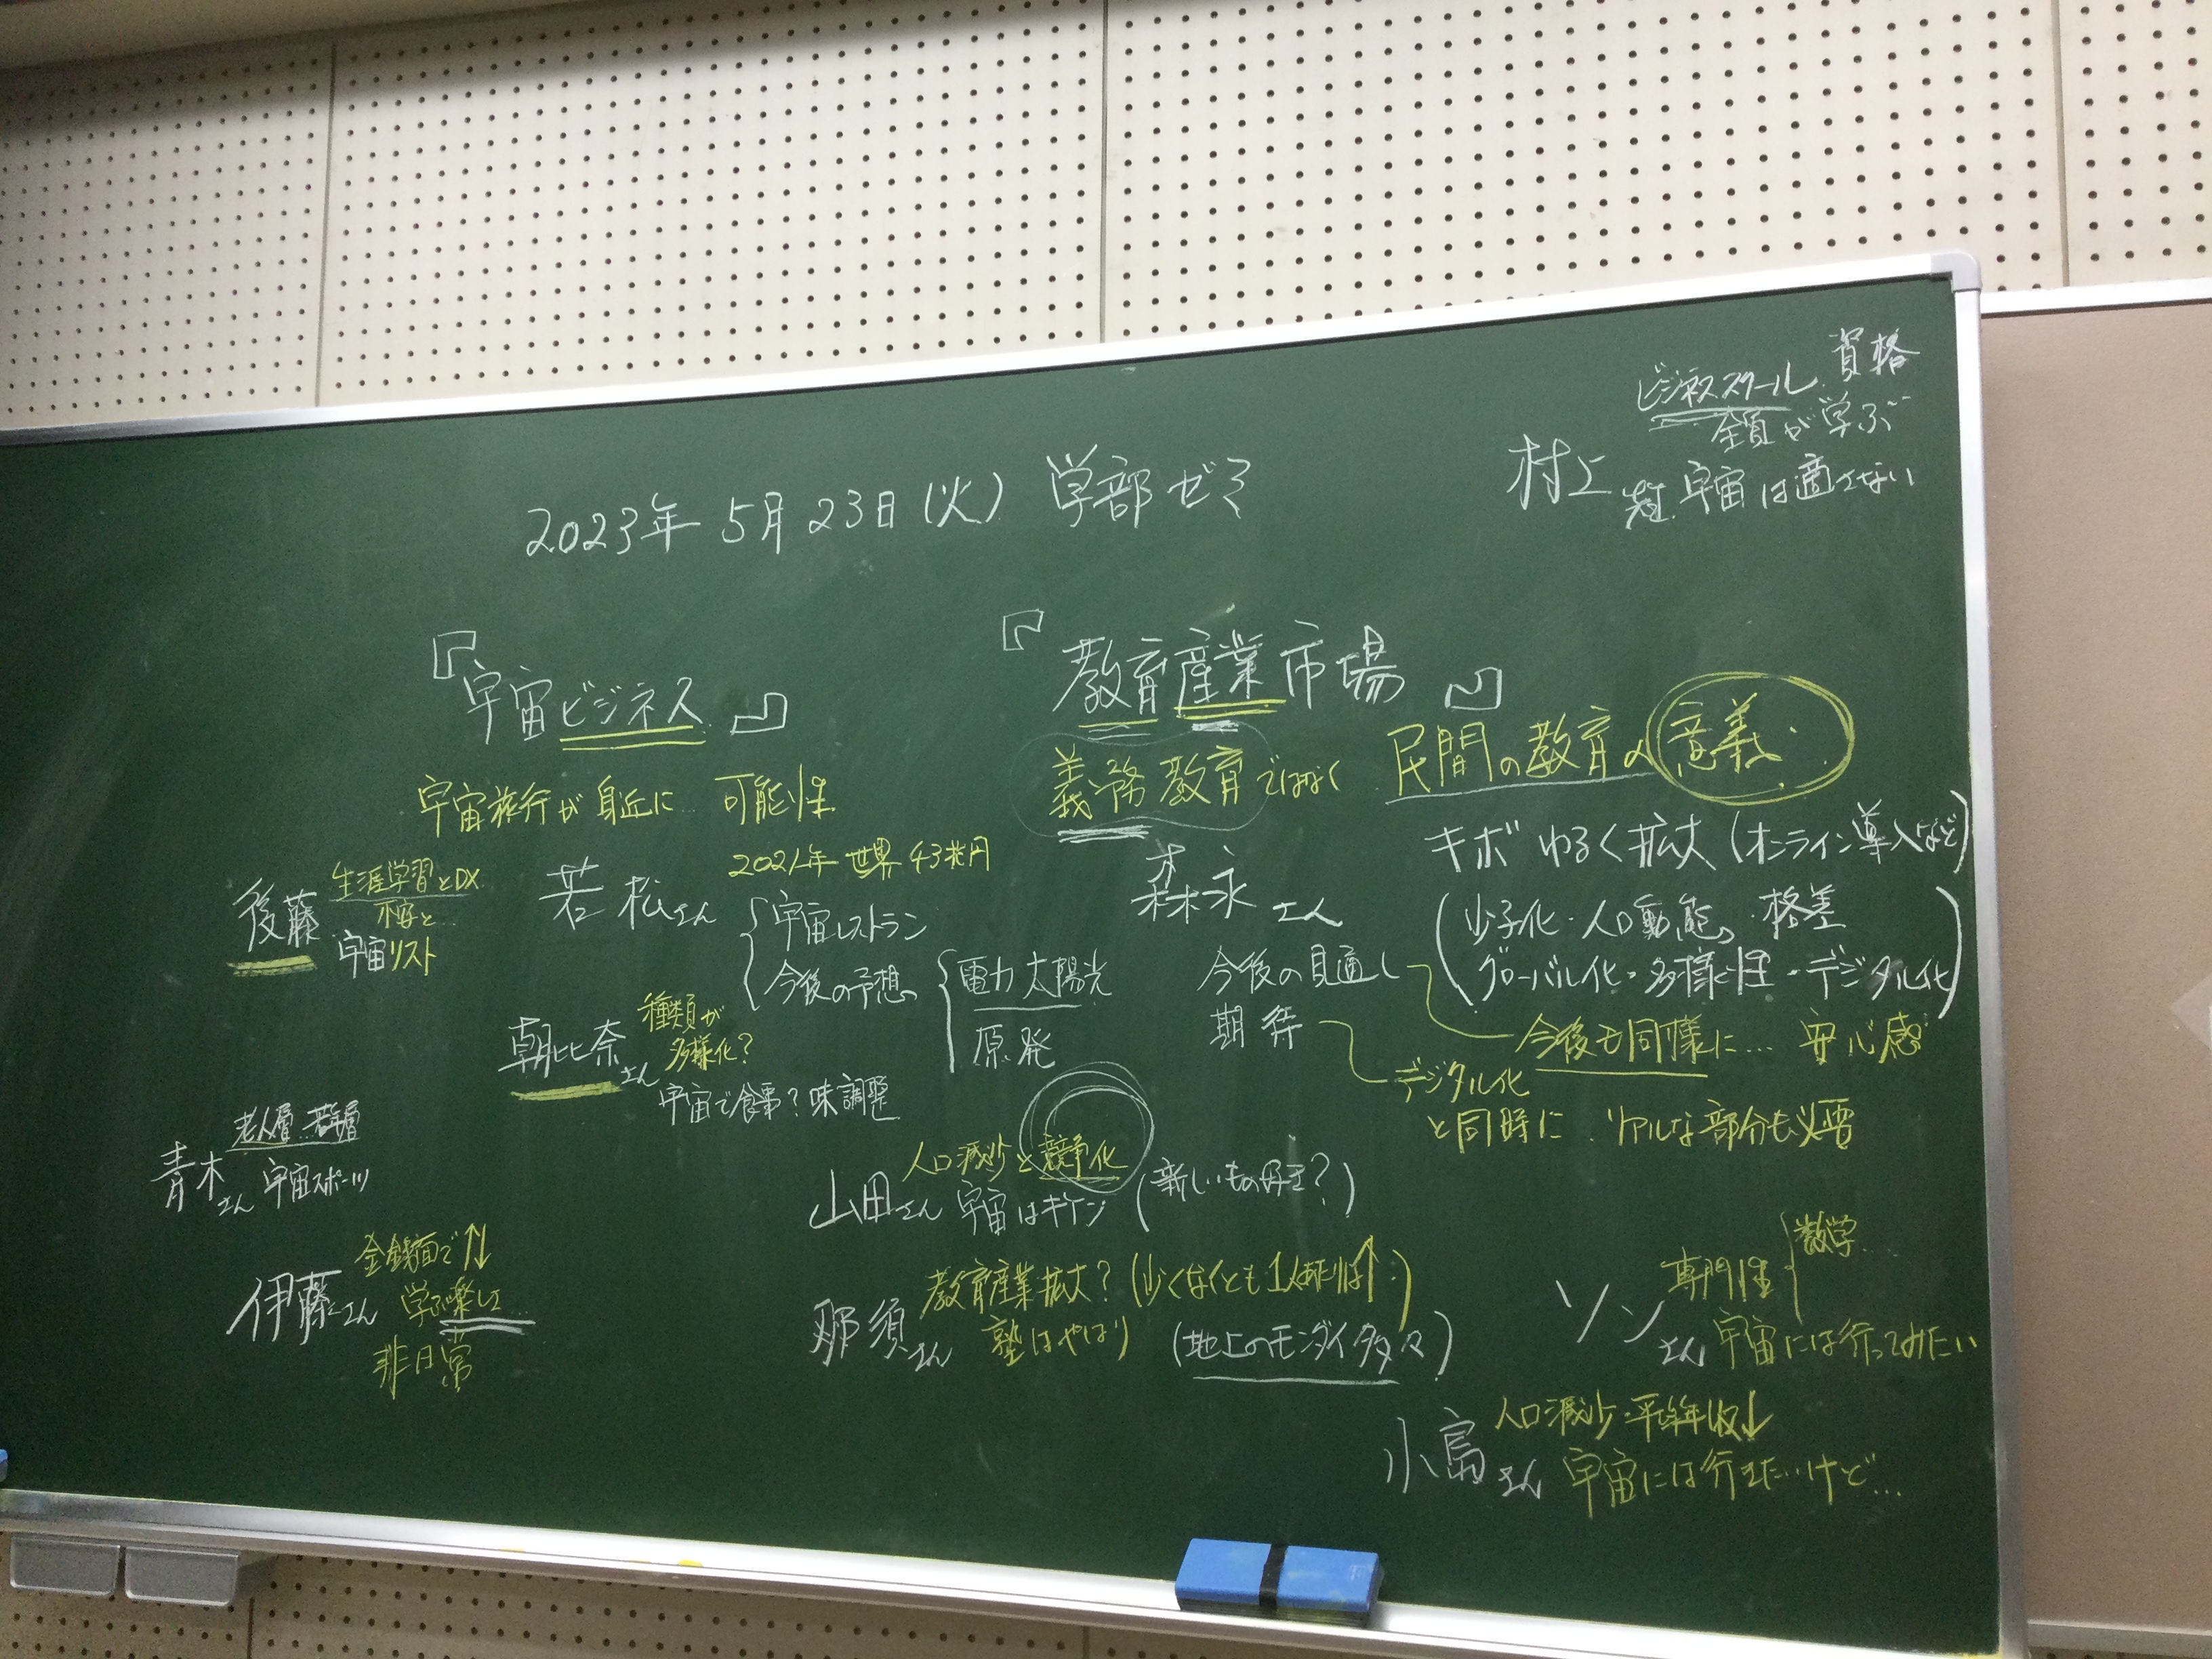 2023年 5月 23日(火) 学部ゼミ
ビジネススクール 資格
全員が学ぶ
村上 宇宙は適さない
『宇宙ビジネス』
宇宙旅行が身近に… 可能性
『教育産業市場』
義務教育ではなく 民間の教育の意義
後藤 生涯学習とDX
宇宙リスト
若松さん 2021年 世界 43兆円
宇宙レストラン
今後の予想 電力 太陽光
原発
朝比奈さん 種類が
多様化?
宇宙で食事? 味調整
森永さん キボ ゆるく拡大 (オンライン導入など)
(少子化・人口動態、格差
グローバル化・多様性・デジタル化)
今後の見通し 今後も同様に… 安心感
期待 デジタル化
と同時に リアルな部分も必要
青木さん 老人層…若年層
宇宙スポーツ
山田さん 人口減少と競争化
宇宙はキケン (新しいもの
伊藤さん 金銭面で↑↓
学ぶ楽して…
非日常
那須さん 教育産業拡大? (少なくとも1人あたりは↑)
塾はやはり (地上のモンダイ多々)
ソンさん 専門性 数学…
宇宙には行ってみたい
小島さん 人口減少・平均年収↓
宇宙には行きた…けど…